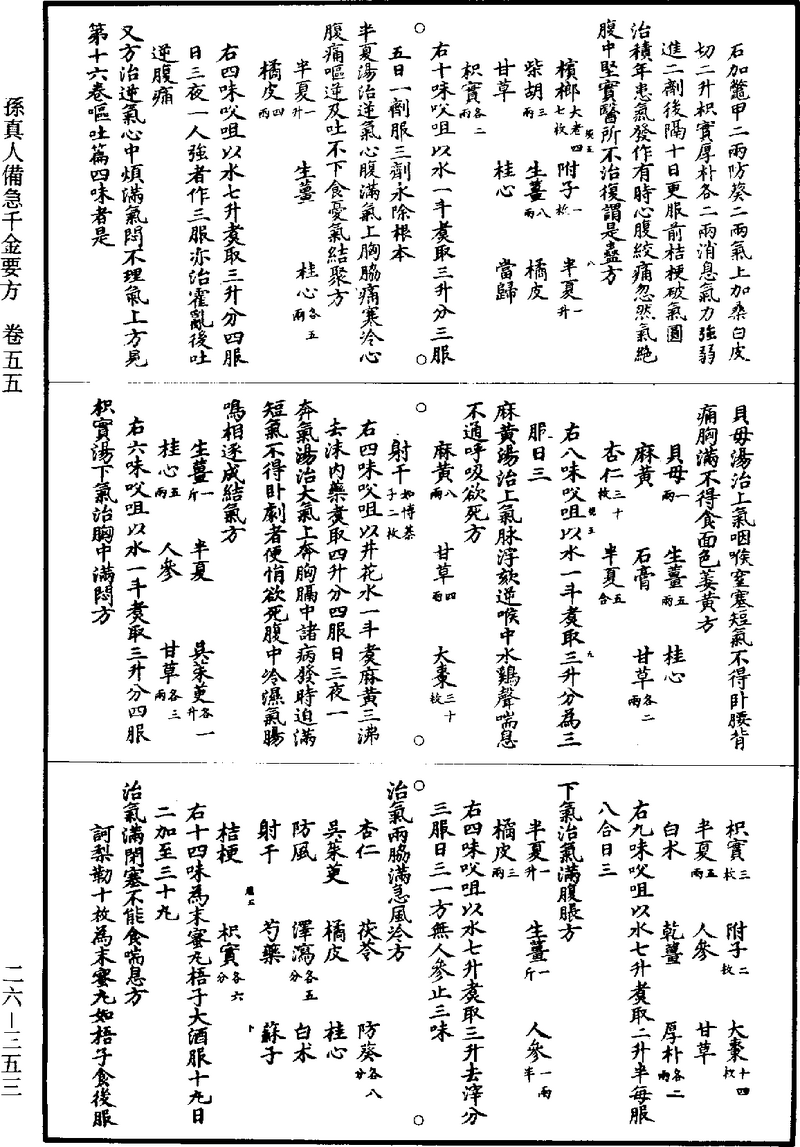 孫真人備急千金要方　卷五五
二六—三五三
石加鼈甲二兩防葵二兩氣上加桑白皮
切二升枳實厚朴各二兩消息氣力強弱
進二劑後隔十日更服前桔梗破氣圓
治積年患氣發作有時心腹絞痛忽然氣絶
腹中堅實醫所不治復謂是蠱方
檳榔大者四七枚　附子一枚　半夏一升
柴胡三兩　生薑八兩　橘皮
甘草　桂心　當歸
枳實各二兩
右十味㕮咀以水一斗煮取三升分三服
五日一劑服三劑永除根本
半夏湯治逆氣心腹滿氣上胸脇痛寒冷心
腹痛嘔逆及吐不下食憂氣結聚方
半夏一升　生薑　桂心各五兩
橘皮四兩
右四味㕮咀以水七升煮取三升分四服
日三夜一人強者作三服亦治霍亂後吐
逆腹痛
又方治逆氣心中煩滿氣悶不理氣上方見
第十六卷嘔吐篇四味者是
貝母湯治上氣咽喉窒塞短氣不得卧腰背
痛胸滿不得食面色萎黄方
貝母一兩　生薑五兩　桂心
麻黄　石膏　甘草各二兩
杏仁三十枚　半夏五合
右八味㕮咀以水一斗煮取三升分為三
服日三
麻黄湯治上氣脉浮欬逆喉中水鷄聲喘息
不通呼吸欲死方
麻黄八兩　甘草四兩　大棗三十枚
射干如博棊子二枚
右四味㕮咀以井花水一斗煮麻黄三沸
去沫内藥煮取四升分四服日三夜一
奔氣湯治大氣上奔胸膈中諸病發時迫滿
短氣不得卧劇者便悁欲死腹中冷濕氣腸
鳴相逐成結氣方
生薑一斤　半夏　吳茱萸各一升
桂心五兩　人參　甘草各三兩
右六味㕮咀以水一斗煮取三升分四服
枳實湯下氣治胸中滿悶方
枳實三枚　附子二枚　大棗十四枚
半夏五兩　人參　甘草
白朮　乾薑　厚朴各二兩
右九味㕮咀以水七升煮取二升半每服
八合日三
下氣治氣滿腹脹方
半夏一升　生薑一斤　人參一兩半
橘皮三兩
右四味㕮咀以水七升煮取三升去滓分
三服日三一方無人參止三味
治氣兩脇滿急風冷方
杏仁　茯苓　防葵各八分
吳茱萸　橘皮　桂心
防風　澤瀉各五分　白朮
射干　芍藥　蘇子
桔梗　枳實各六分
右十四味為末蜜丸梧子大酒服十丸日
二加至三十丸
治氣滿閉塞不能食喘息方
訶梨勒十枚為末蜜丸如梧子食後服